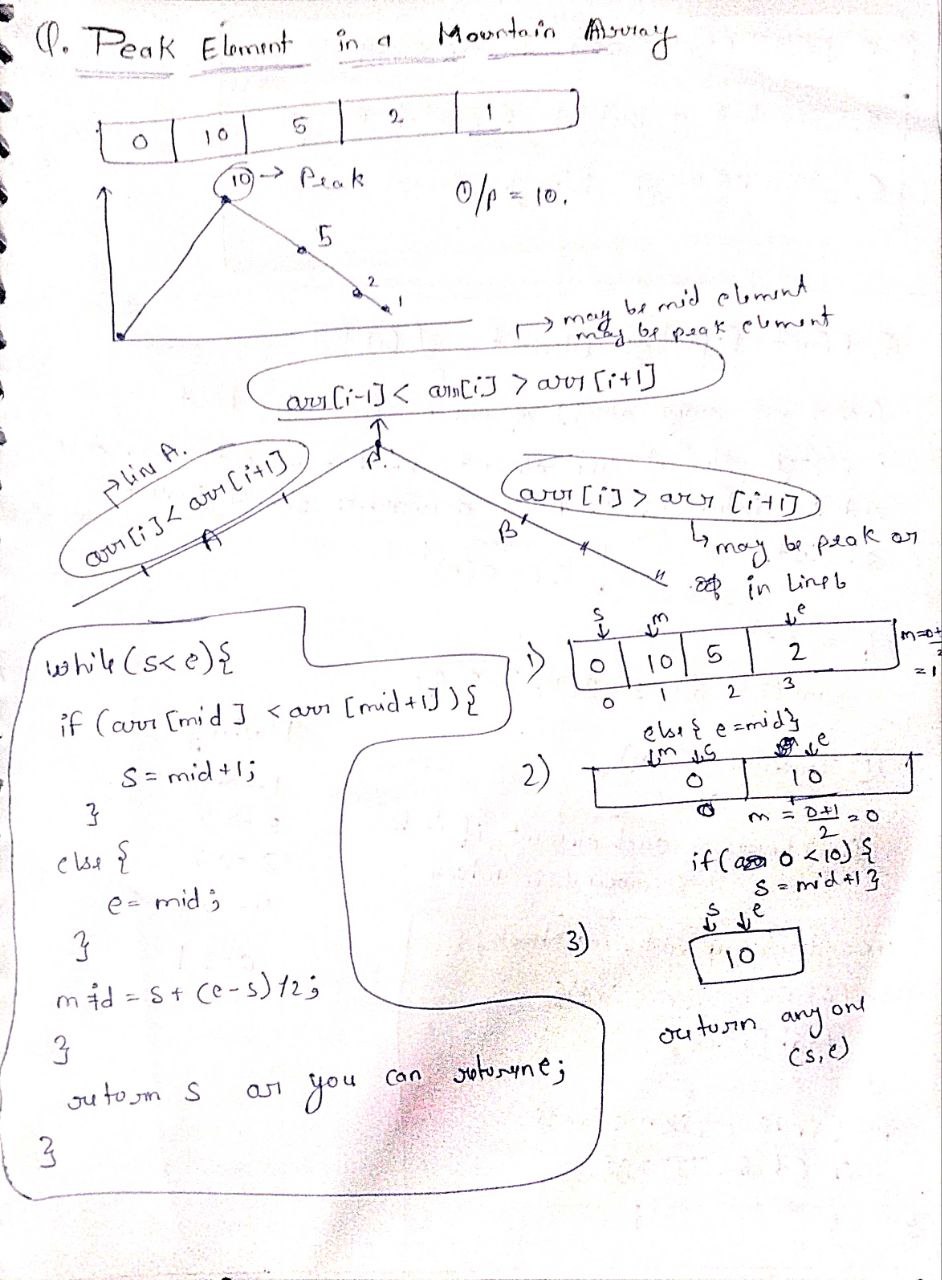 Q. Peak Element in a Mountain Array
0 10 5 2 1
10 → Peak
O/p = 10.
5
2
1
→ may be mid element
may be peak element
arr[i-1] < arr[i] > arr[i+1]
→ line A.
arr[i] < arr[i+1]
P.
A
B
arr[i] > arr[i+1]
↳ may be peak or
in Line b
while (s<e){
if (arr[mid] < arr[mid+1]){
s = mid+1;
}
else {
e = mid;
}
mid = s + (e-s)/2;
}
return s or you can return e;
}
1)
s m e
0 10 5 2
0 1 2 3
= 1
else { e = mid}
2)
m s e
0 10
0
m = 0+1/2 = 0
if ( 0 < 10) {
s = mid+1}
3)
s e
10
return any one
(s, e)